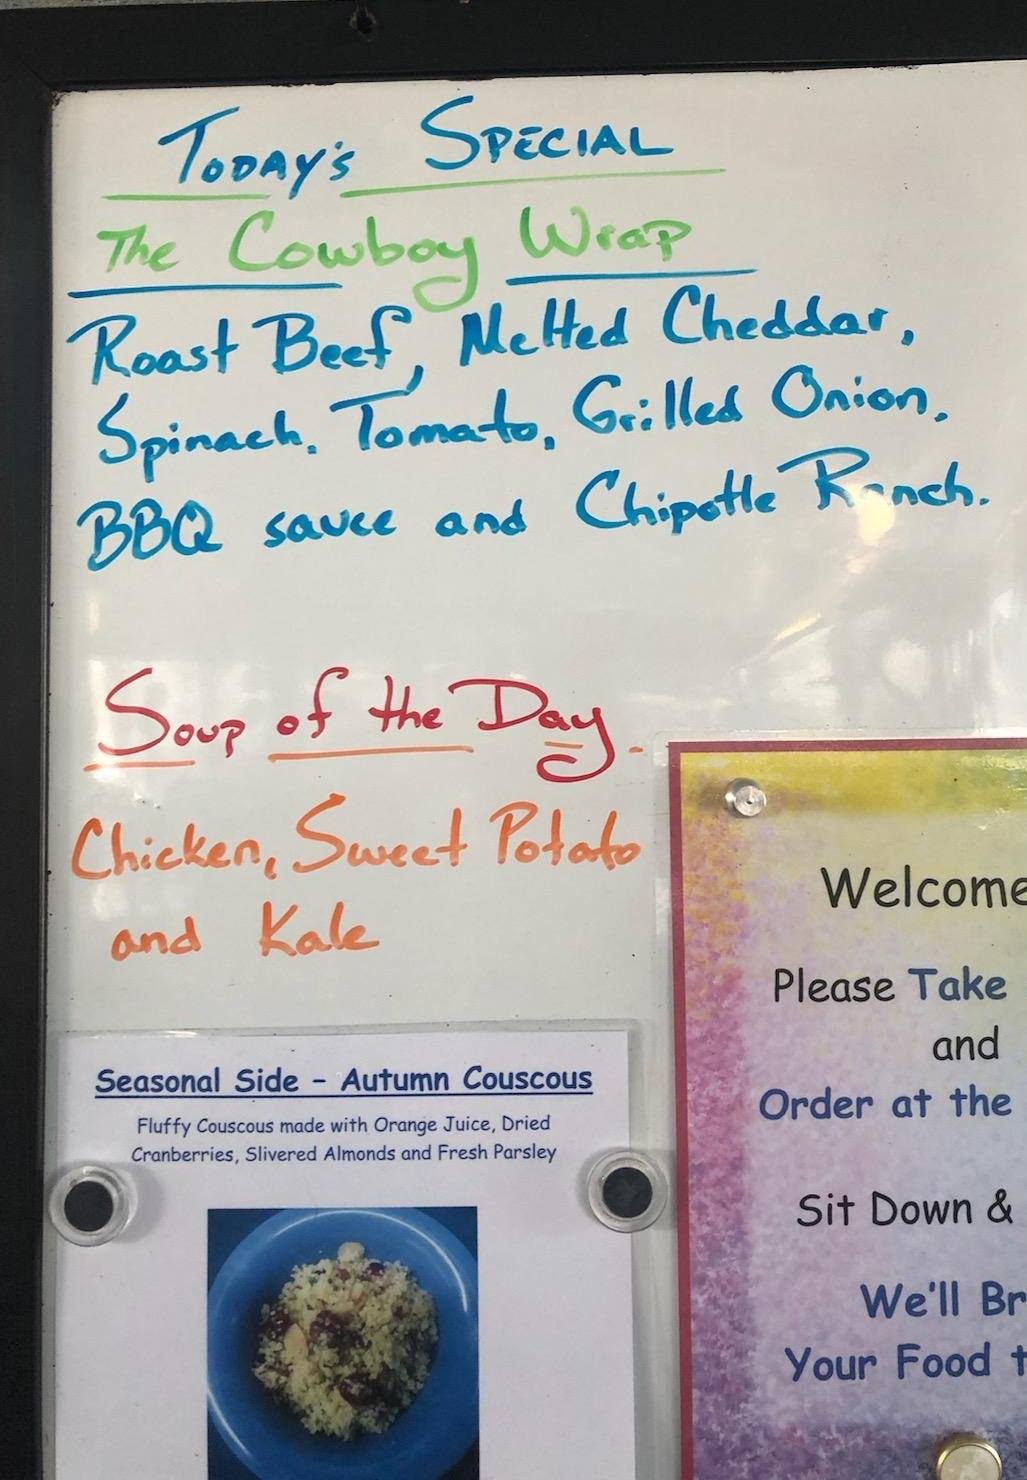 Today's Special
The Cowboy Wrap
Roast Beef, Melted Cheddar,
Spinach, Tomato, Grilled Onion,
BBQ sauce and Chipotle Ranch.
Soup of the Day
Chicken, Sweet Potato
and Kale
Seasonal Side - Autumn Couscous
Fluffy Couscous made with Orange Juice, Dried
Cranberries, Slivered Almonds and Fresh Parsley
Welcome
Please Take
and
Order at the
Sit Down &
We'll Br
Your Food t